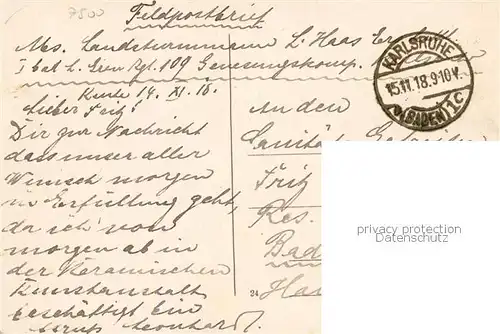 7500
Feldpostbrief
Abs. Landsturmmann L. Haas
I bat L. Gren Rgt. 109 Genesungskomp.
KARLSRUHE
15.11.18.9-10V.
(BADEN) 1 c
Karlsruhe 14. XI. 18.
Lieber Fritz!
Dir zur Nachricht
dass unser aller
Wunsch morgen
in Erfüllung geht,
da ich vom
morgen ab in
der Keramischen
Kunstanstalt
beschäftigt bin
Gruss Leonhard.
An den
Sanitäts
Fritz
Res.
Bad
24 Ha
privacy protection
Datenschutz